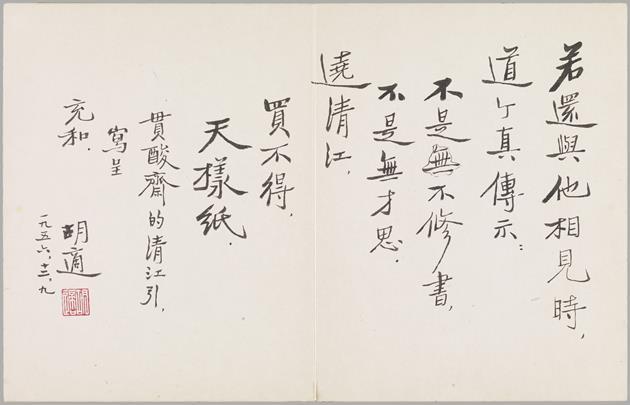 若還與他相見時,
道个真傳示:
不是不修書,
不是無才思.
遶清江,
買不得,
天樣紙.
貫酸齋的清江引,
寫呈
充和.
胡適
一九五六,十二,九